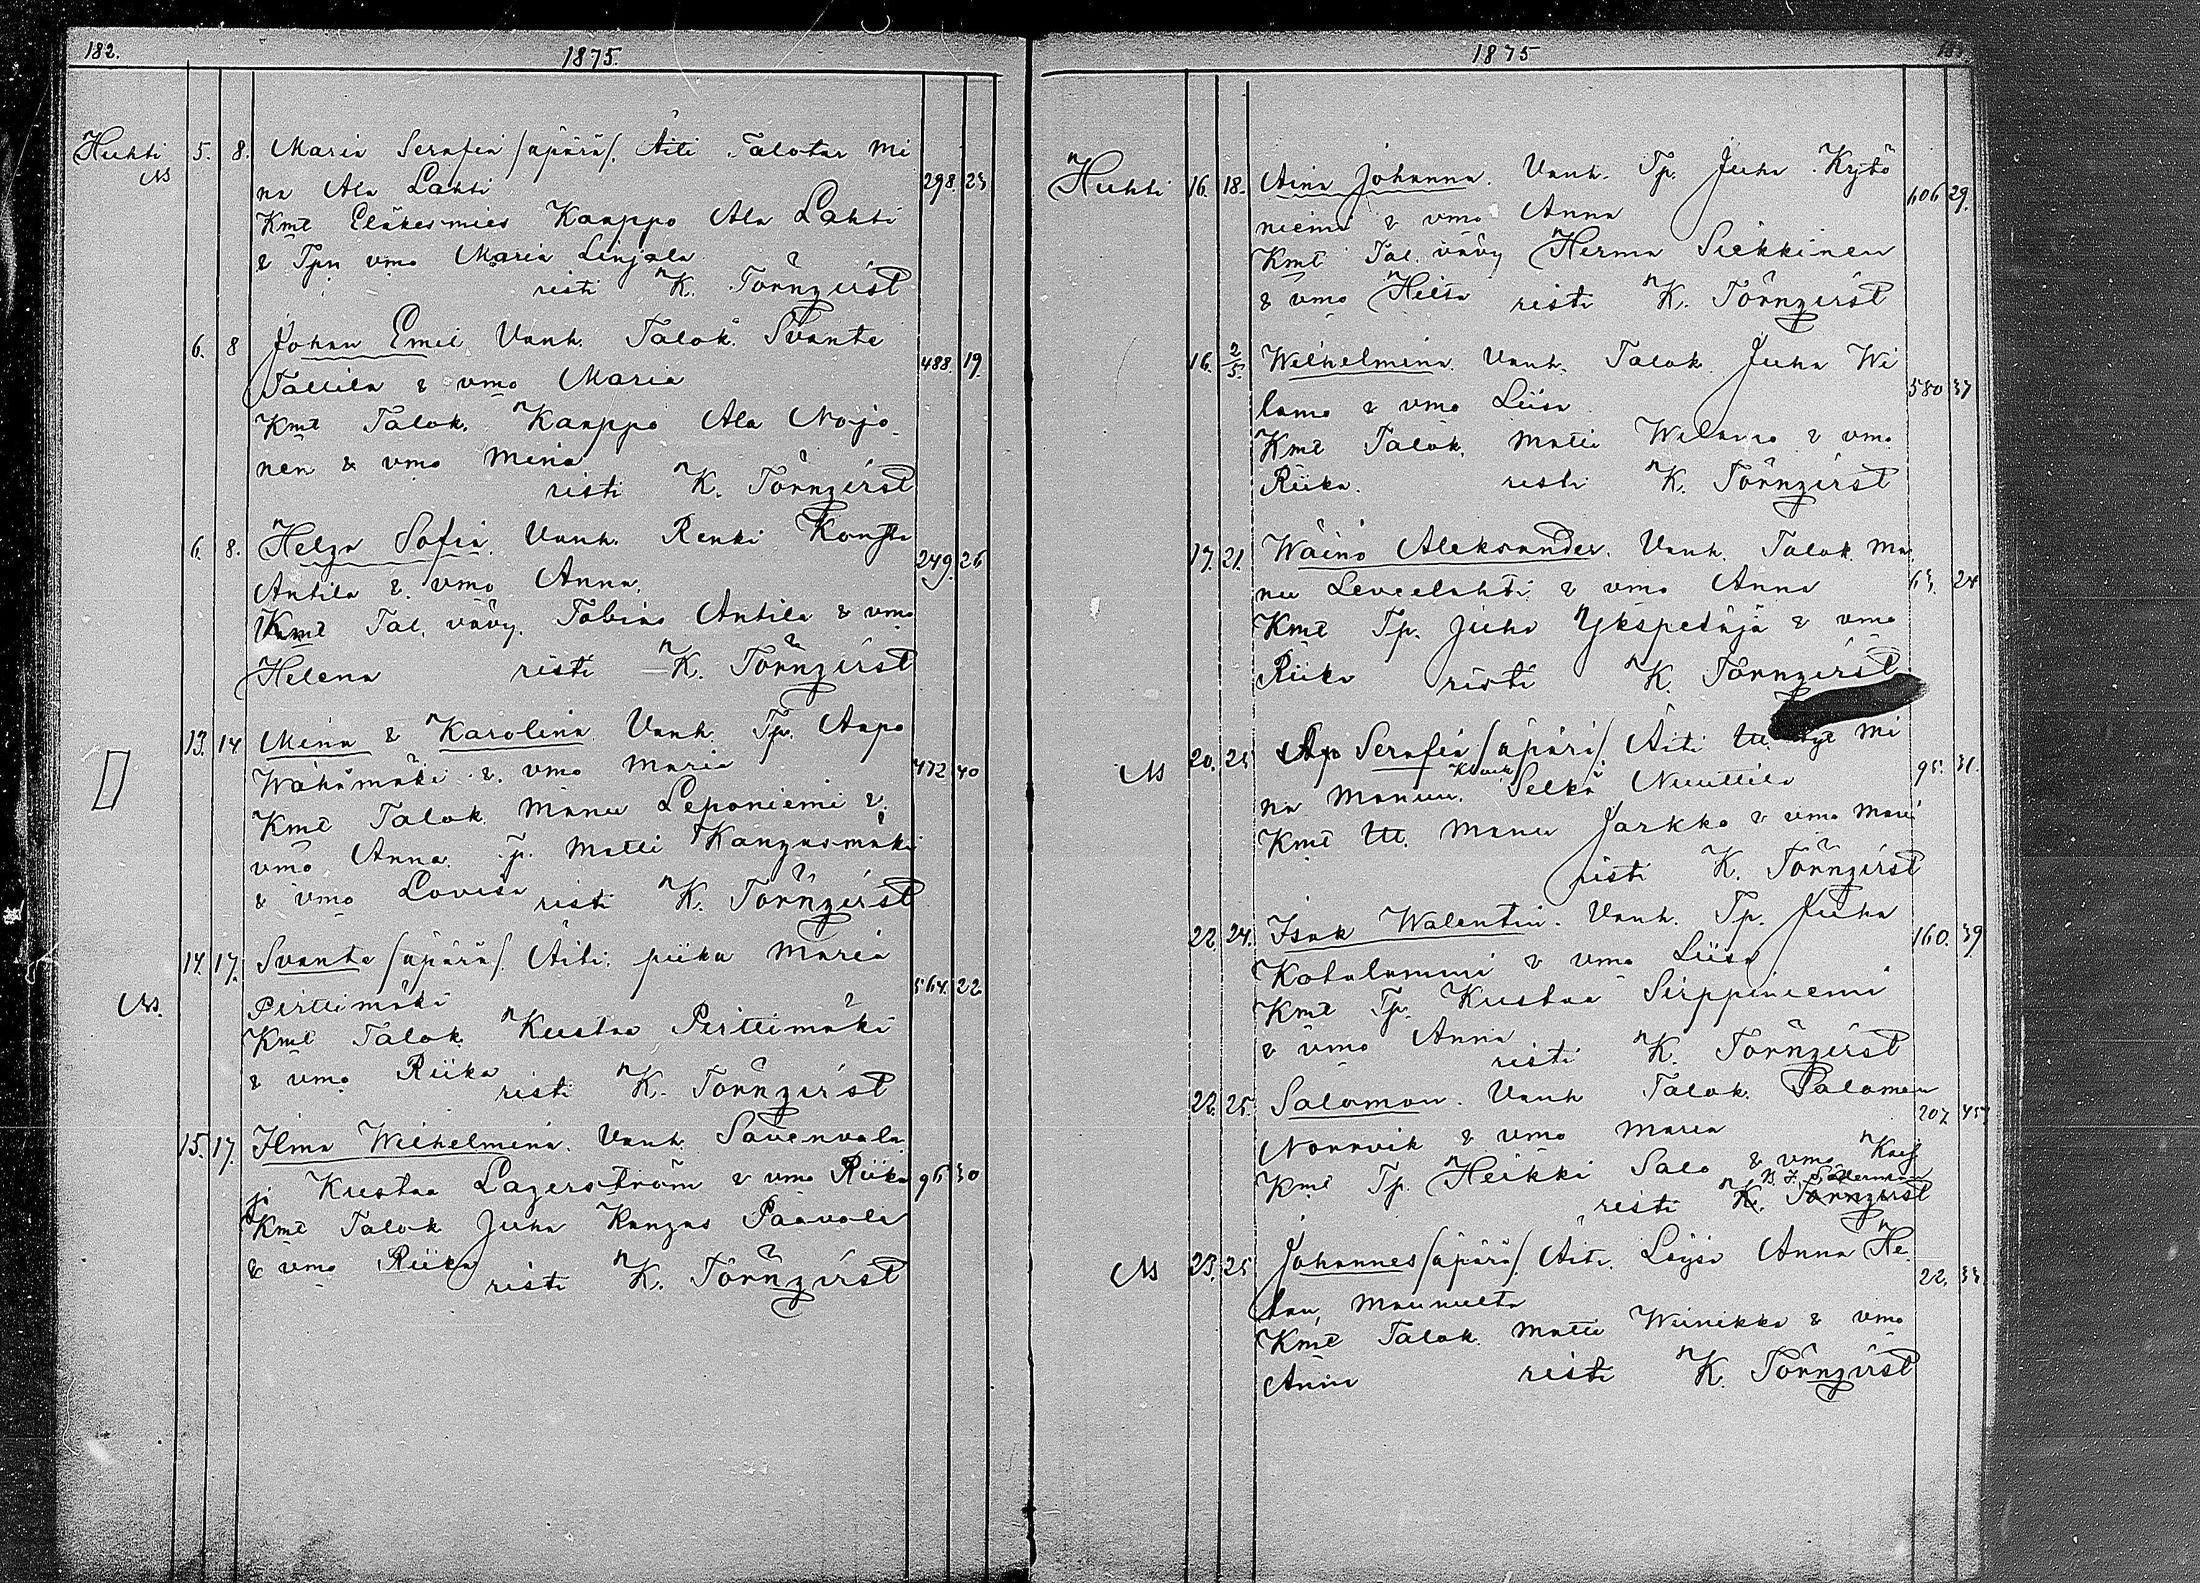 182.
1875.
Huhti 5. 8. Maria Serafia /äpärä/. Äiti Talotar Mi
NB
na Ala Lahti 298. 23
Kmt Eläkesmies Kaappo Ala Lahti
& Tpn vmo Maria Linjala
risti K. Törnqvist
6. 8 Johan Emil Vanh. Talok. Svante
Tallila & vmo Maria 488. 19.
Kmt Talok. Kaappo Ala Nojo
nen & vmo Mina
risti K. Törnqvist
6. 8. Helga Sofia. Vanh. Renki Konsta
Antila & vmo Anna. 249. 26
Kmt Tal. vävy. Tobias Antila & vmo
Helena risti K. Törnqvist
13. 14 Mina & Karolina Vanh. Tp. Aapo
Wähämäki & vmo Maria 472 40
Kmt Talok Manu Leponiemi &
vmo Anna. Tp. Matti Kangasmäki
& vmo Lovisa risti K. Törnqvist
14. 17. Svante /äpärä/. Äiti: piika Maria
NB. Pirttimäki 564. 22
Kmt Talok Kustaa Pirttimäki
& vmo Riika
risti K. Törnqvist
15. 17. Ilma Wilhelmina. Vanh. Savenvala
ja Kustaa Lagerström & vmo Riika 96 30
Kmt Talok Juha Kangas Paavola
& vmo Riika
risti K. Törnqvist
1875
Huhti 16. 18. Aina Johanna. Vanh. Tp. Juha Kytö
niemi & vmo Anna 606 29.
Kmt Tal. vävy Herma Siekkinen
& vmo Heta risti K. Törnqvist
16. 2/5. Wilhelmina. Vanh. Talok. Juha Wi
lamo & vmo Liisa 580 37
Kmt Talok. Matti Wilamo & vmo
Riika. risti K. Törnqvist
17. 21. Wäinö Aleksander. Vanh. Talok. Ma
nu Leveelahti & vmo Anna 63. 24
Kmt Tp. Juha Ykspetäjä & vmo
Riika risti K. Törnqvist
NB 20. 25 Serafia /äpärä/ Äiti Itt. Mi
na Manun. Selkä Nuuttila 95. 31.
Kmt Itt. Manu Jarkko & vmo Maria
risti K. Törnqvist
22. 24. Isak Walentin. Vanh. Tp. Juha
Kotalammi & vmo Liisa 160. 39
Kmt Tp. Kustaa Sirppiniemi
& vmo Anna
risti K. Törnqvist
22. 25. Salomon. Vanh Talok. Salomon
Norrvik & vmo Maria 207 45
Kmt Tp. Heikki Salo & vmo Kaisa
Söderman
risti K. Törnqvist
NB 23. 25 Johannes /äpärä/. Äiti. Löysä Anna He
lan Maunulta 22. 33
Kmt Talok. Matti Wiinikka & vmo
Anna risti K. Törnqvist